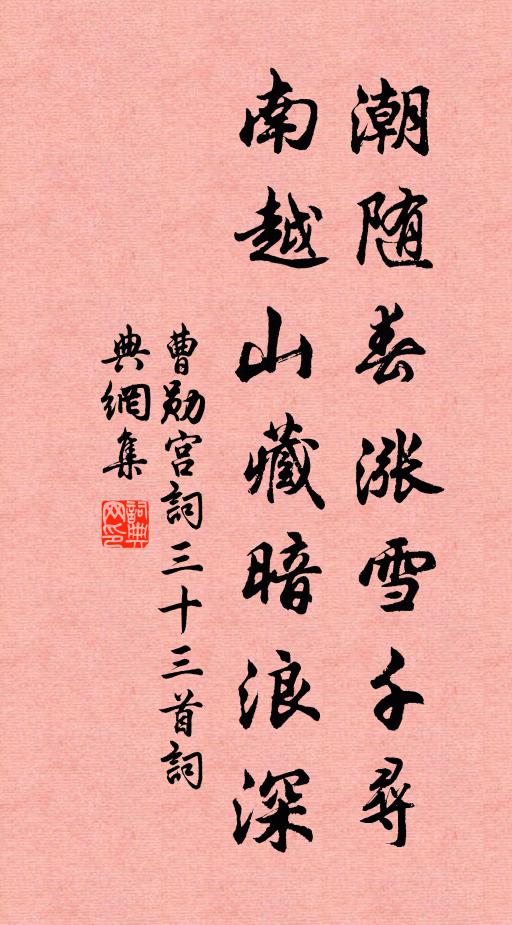 潮随春漲雪千尋
南越山藏暗浪深
曹勛宮詞三十三首詞
典網集
詞典網印